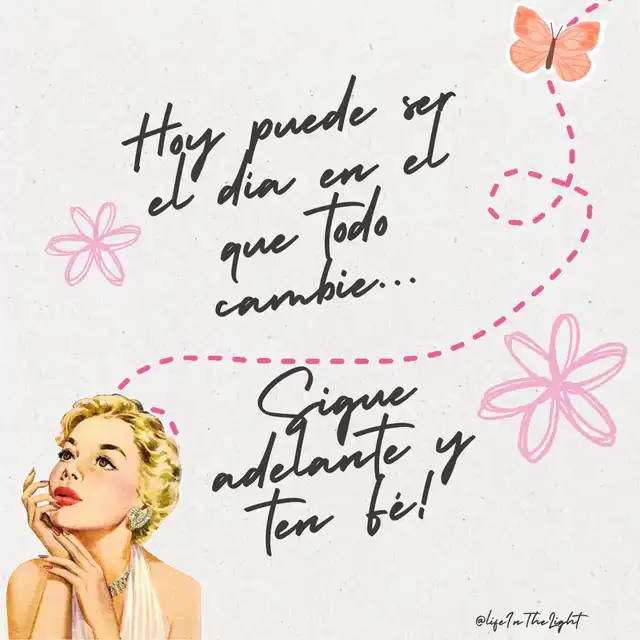 Hoy puede ser
el dia en el
que todo
cambie...
Sigue
adelante y
ten fé!
@lifeInTheLight